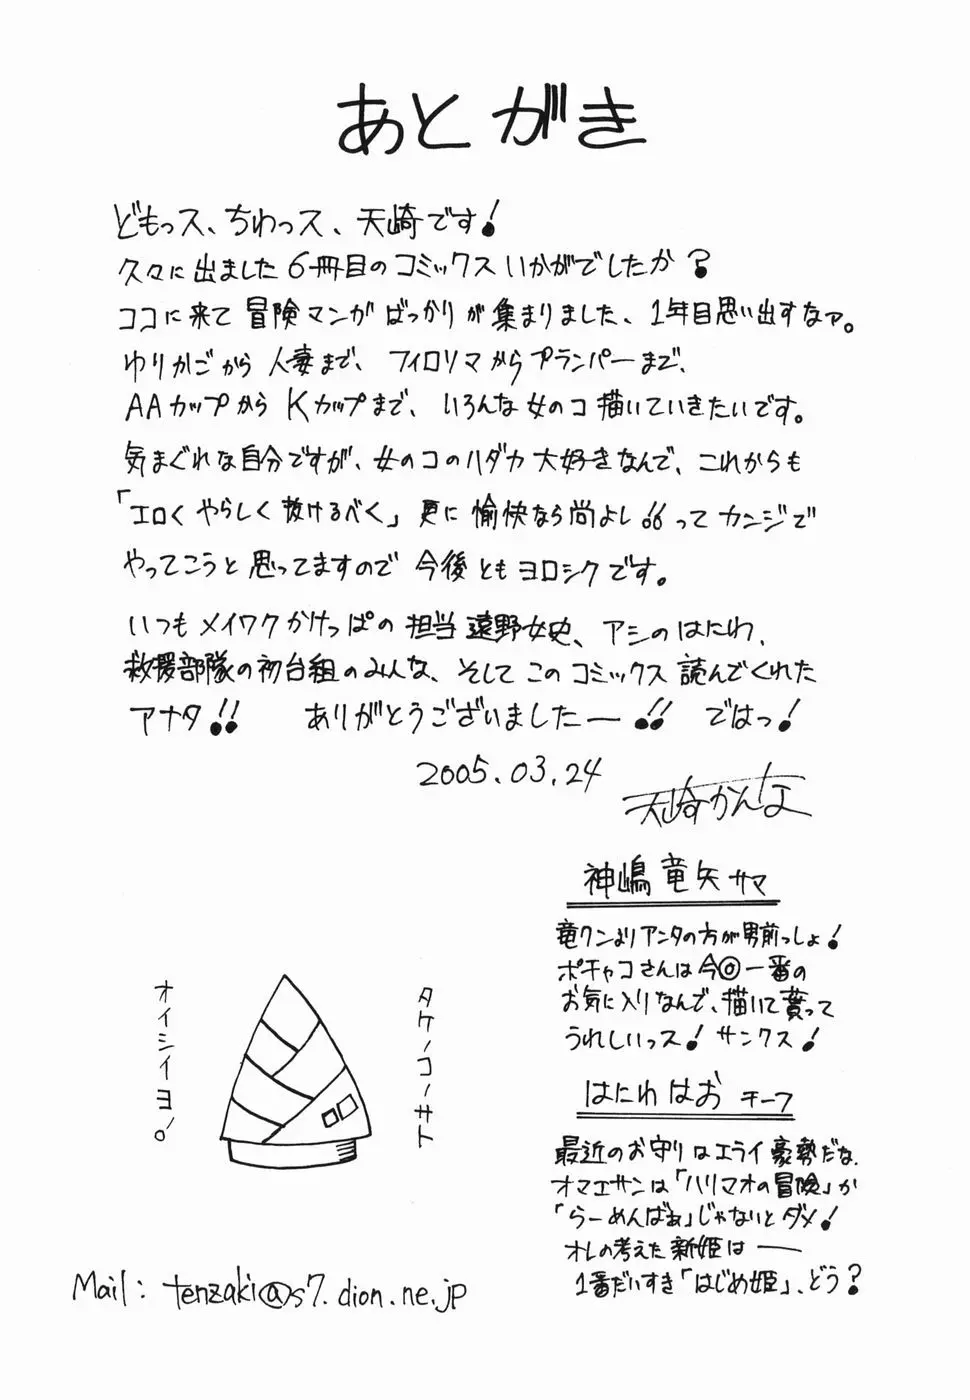 あとがき
どもっス、ちわっス、天崎です!
久々に出ました6冊目のコミックスいかがでしたか?
ココに来て冒険マンガばっかりが集まりました、1年目思い出すなァ。
ゆりかごから人妻まで、フィロリマからプランパーまで、
AAカップからKカップまで、いろんな女のコ描いていきたいです。
気まぐれな自分ですが、女のコのハダカ大好きなんで、これからも
「エロくやらしく抜けるべく」更に愉快なら尚よし!!ってカンジで
やってこうと思ってますので今後ともヨロシクです。
いつもメイワクかけっぱの担当遠野女史、アシのはにわ、
救援部隊の初台組のみんな、そしてこのコミックス読んでくれた
アナタ!! ありがとうございましたー!! ではっ!
2005.03.24
天崎かんな
神嶋竜矢サマ
竜クンよりアンタの方が男前っしょ!
ポチャコさんは今◎一番の
お気に入りなんで、描いて貰って
うれしいっス! サンクス!
はにわはお チーフ
最近のお守りはエライ豪勢だな、
オマエサンは「ハリマオの冒険」か
「らーめんばぁ」じゃないとダメ!
オレの考えた新姫は——
1番だいすき「はじめ姫」、どう?
タケノコノサト
オイシイヨ。
Mail: tenzaki@s7.dion.ne.jp